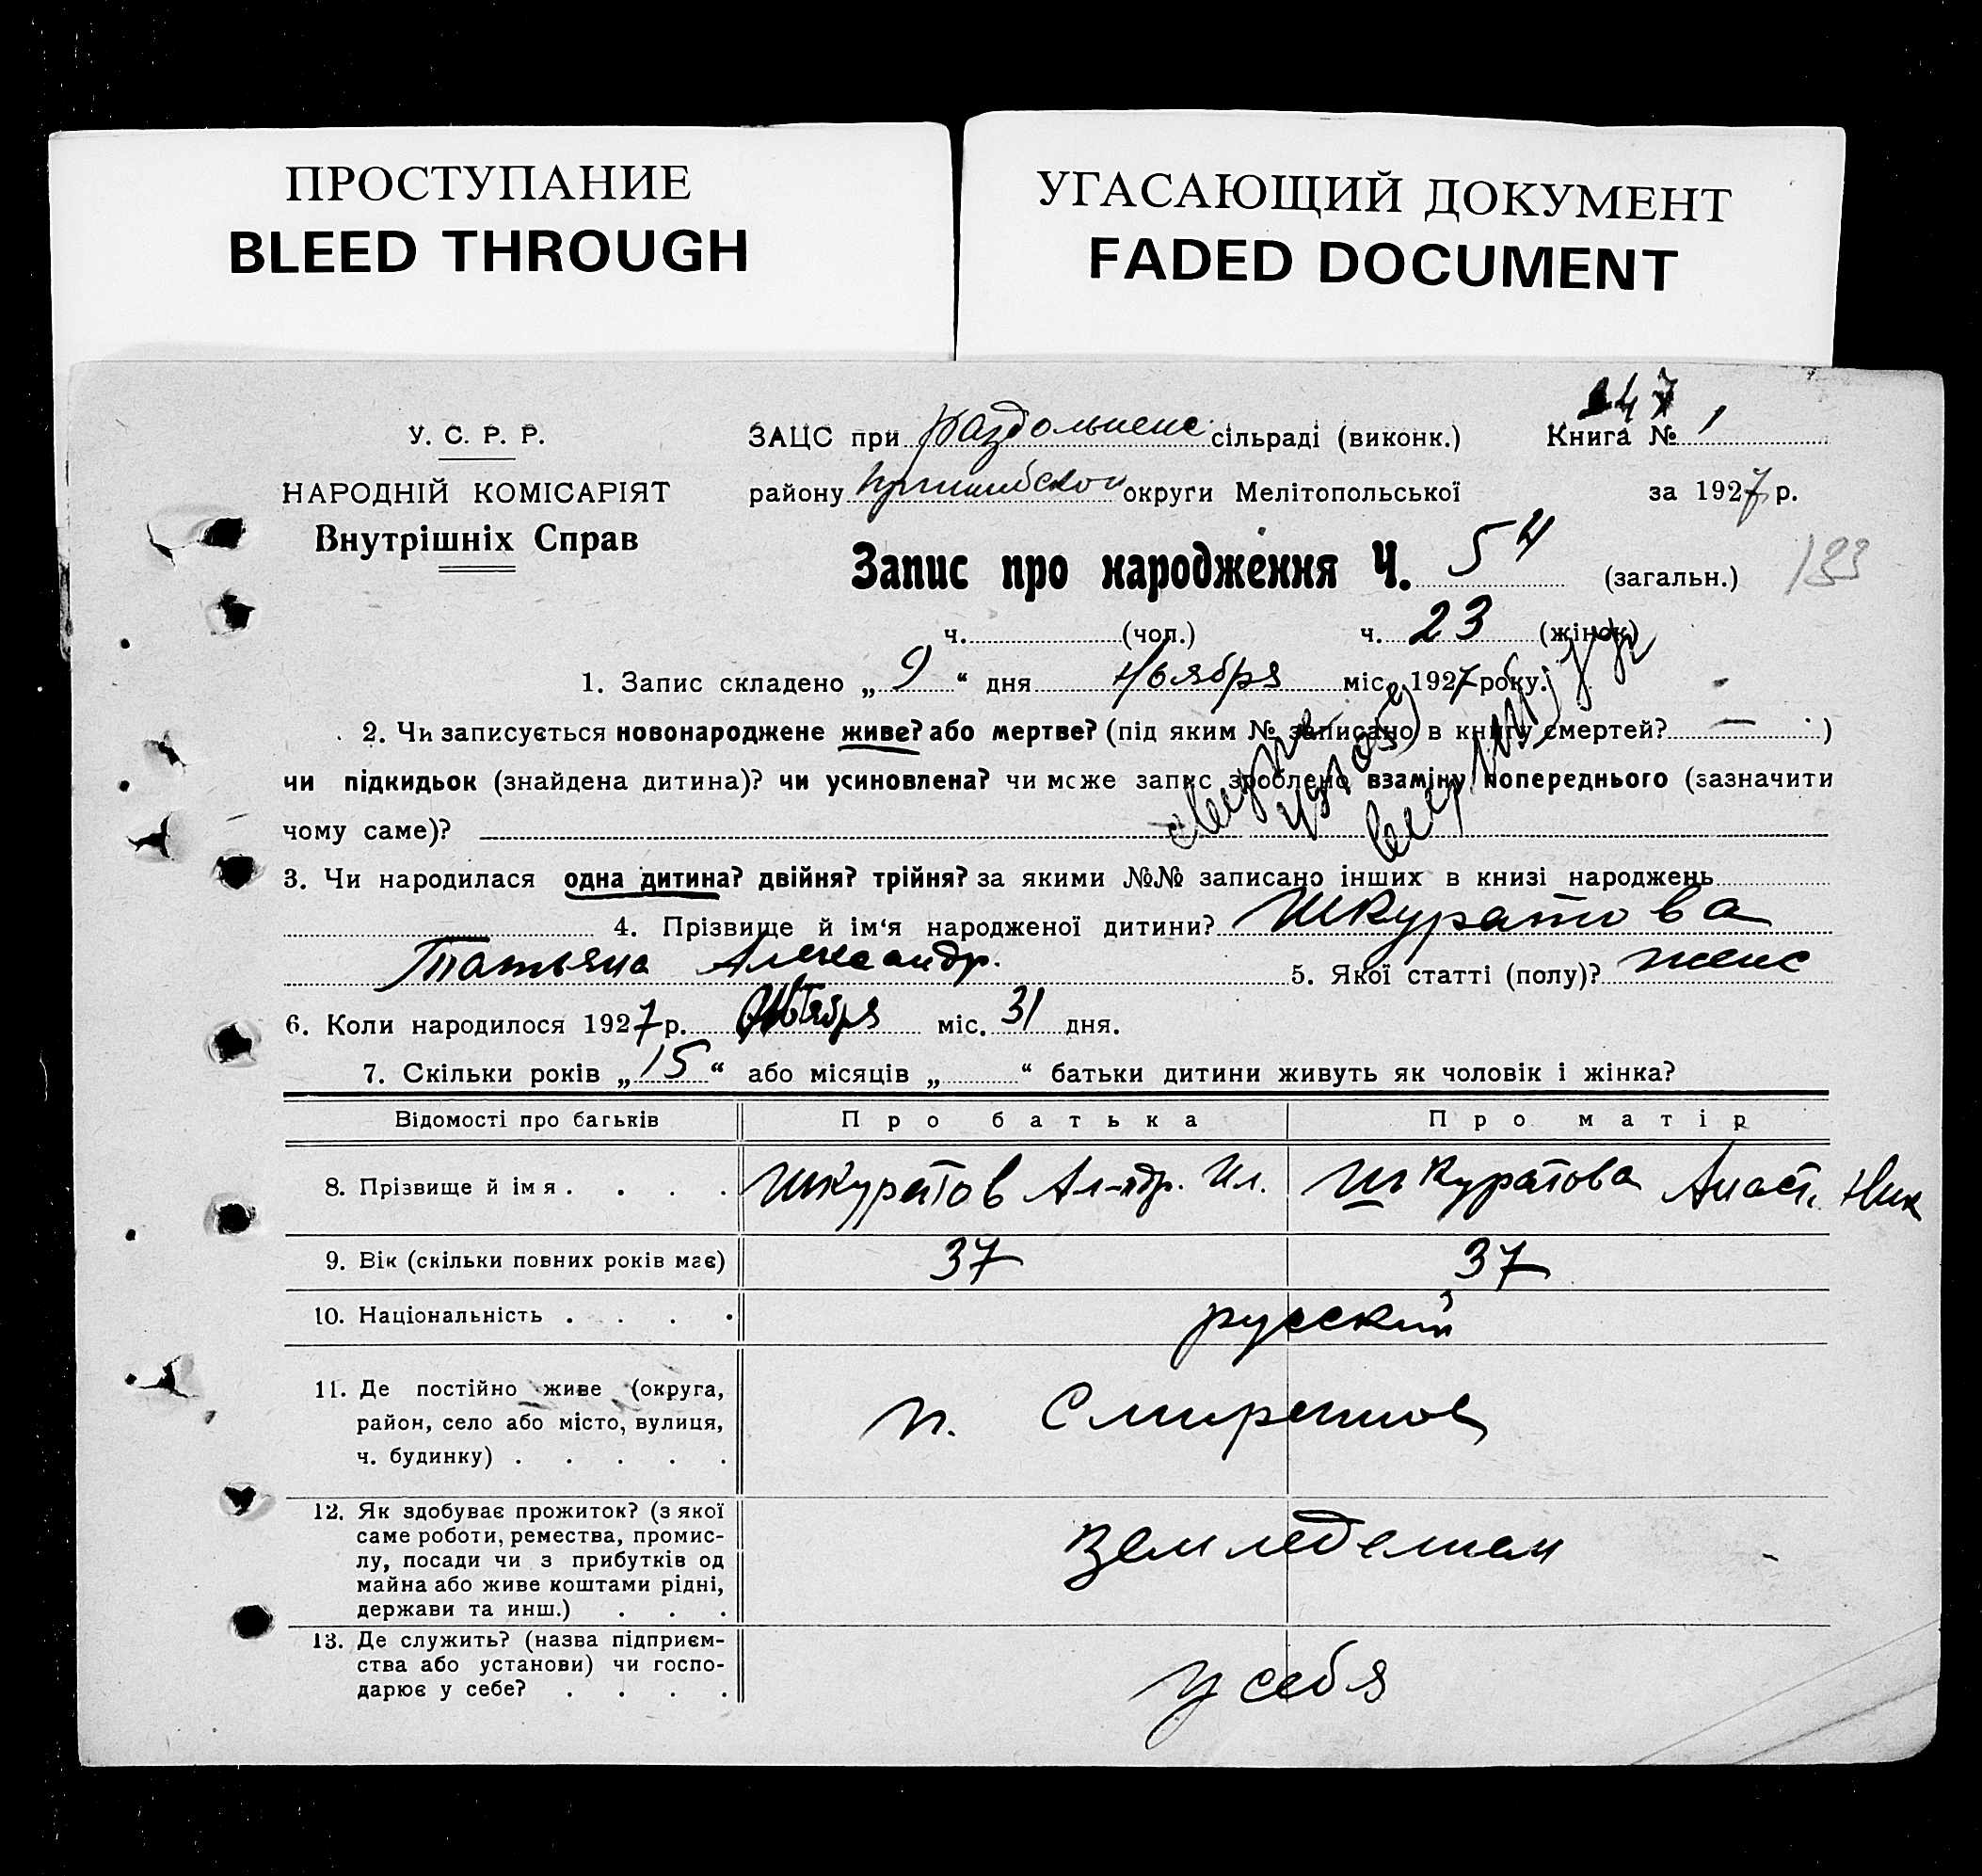 ПРОСТУПАНИЕ
BLEED THROUGH
УГАСАЮЩИЙ ДОКУМЕНТ
FADED DOCUMENT
У. С. Р. Р.
НАРОДНІЙ КОМІСАРІЯТ
Внутрішніх Справ
ЗАЦС при Раздольненс. сільраді (виконк.) Книга № 1
району Пришибской округи Мелітопольської за 1927 р.
Запис про народження Ч. 54 (загальн.) 133
ч. (чол.) ч. 23 (жінок)
1. Запис складено „ 9 “ дня Ноября міс. 1927 року.
2. Чи записується новонароджене живе? або мертве? (під яким № записано в книгу смертей? — )
чи підкидьок (знайдена дитина)? чи усиновлена? чи може запис зроблено взаміну попереднього (зазначити
чому саме)?
3. Чи народилася одна дитина? двійня? трійня? за якими №№ записано інших в книзі народжень
4. Прізвище й ім‘я народженої дитини? Шкуратова
Татьяна Александр. 5. Якої статті (полу)? женс
6. Коли народилося 1927 р. Октября міс. 31 дня.
7. Скільки років „ 15 “ або місяців „ “ батьки дитини живуть як чоловік і жінка?
Відомості про батьків Про батька Про матір
8. Прізвище й імя . . . . Шкуратов Ал-ндр. Ил. Шкуратова Анаст. Ник
9. Вік (скільки повних років має) 37 37
10. Національність . . . . русский
11. Де постійно живе (округа,
район, село або місто, вулиця,
ч. будинку) . . . . .
п. Смиренов
12. Як здобуває прожиток? (з якої
саме роботи, ремества, промис-
лу, посади чи з прибутків од
майна або живе коштами рідні,
держави та инш.) . . .
Земледелием
13. Де служить? (назва підприєм-
ства або установи) чи госпо-
дарює у себе? . . . .
у себя